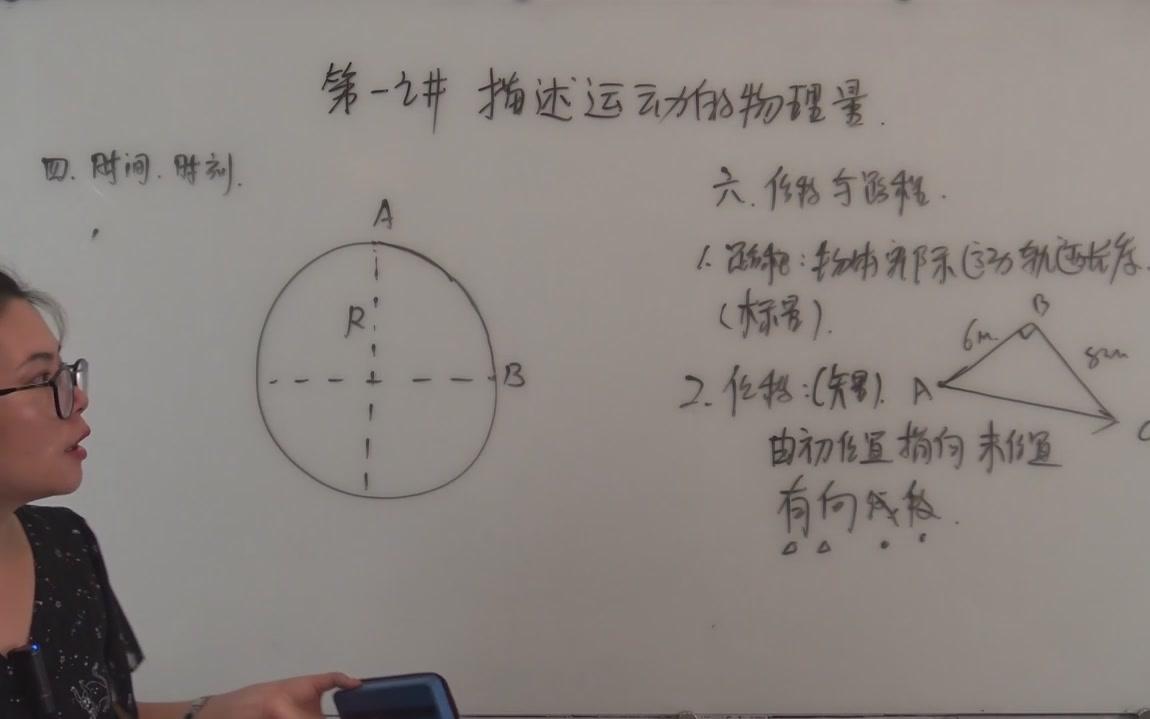 第一讲 描述运动的物理量.
四. 时间. 时刻.
A
R
B
六. 位移与路程.
1. 路程: 物体实际运动轨迹长度.
(标量).
B
6m
8m
2. 位移:(矢量).
A
C
由初位置指向末位置
有向线段.